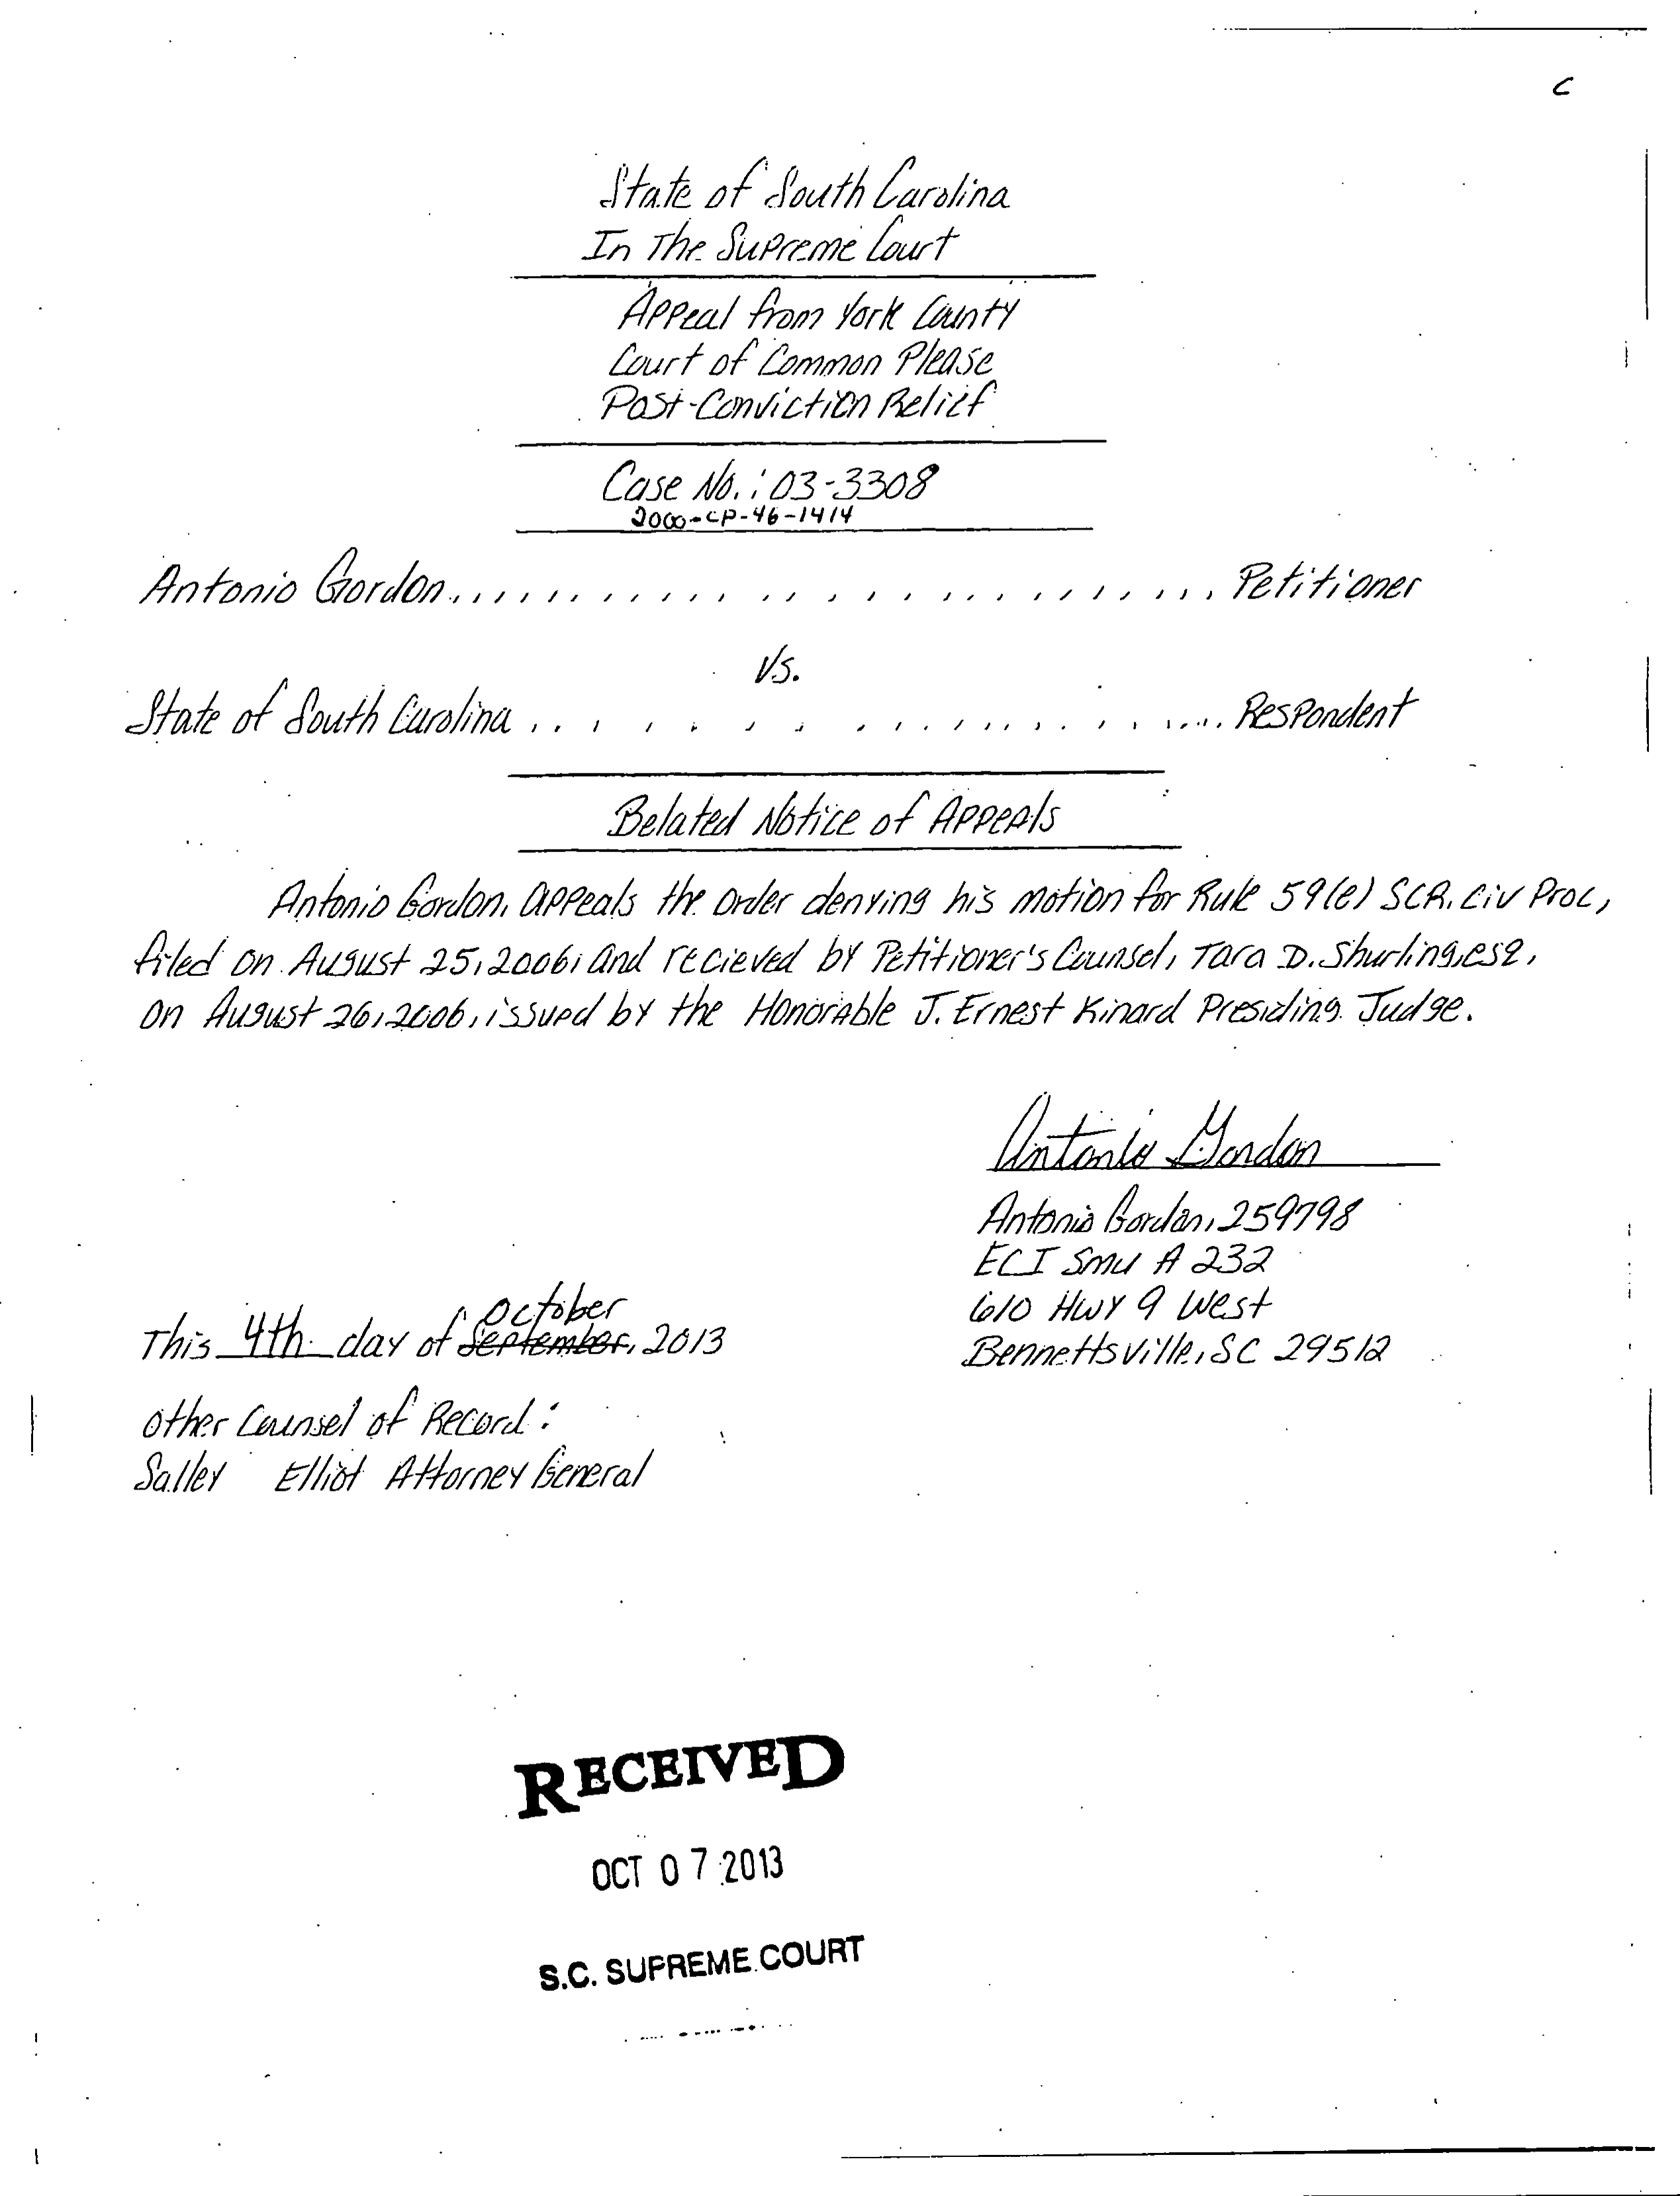 C
State of South Carolina
In The Supreme Court
Appeal from York County
Court of Common Please
Post-Conviction Relief
Case No.: 03-3308
2000-CP-46-1414
Antonio Gordon................................ Petitioner
Vs.
State of South Carolina........................ Respondent
Belated Notice of Appeals
Antonio Gordon, appeals the order denying his motion for Rule 59(e) SCR. Civ Proc,
filed on August 25, 2006, and recieved by Petitioner's Counsel, Tara D. Shurling, esq,
on August 26, 2006, issued by the Honorable J. Ernest Kinard Presiding Judge.
Antonio Gordon
Antonio Gordon, 259798
ECI SMU A 232
610 Hwy 9 West
Bennettsville, SC 29512
October
This 4th day of September, 2013
Other Counsel of Record:
Salley Elliot Attorney General
RECEIVED
OCT 07 2013
S.C. SUPREME COURT